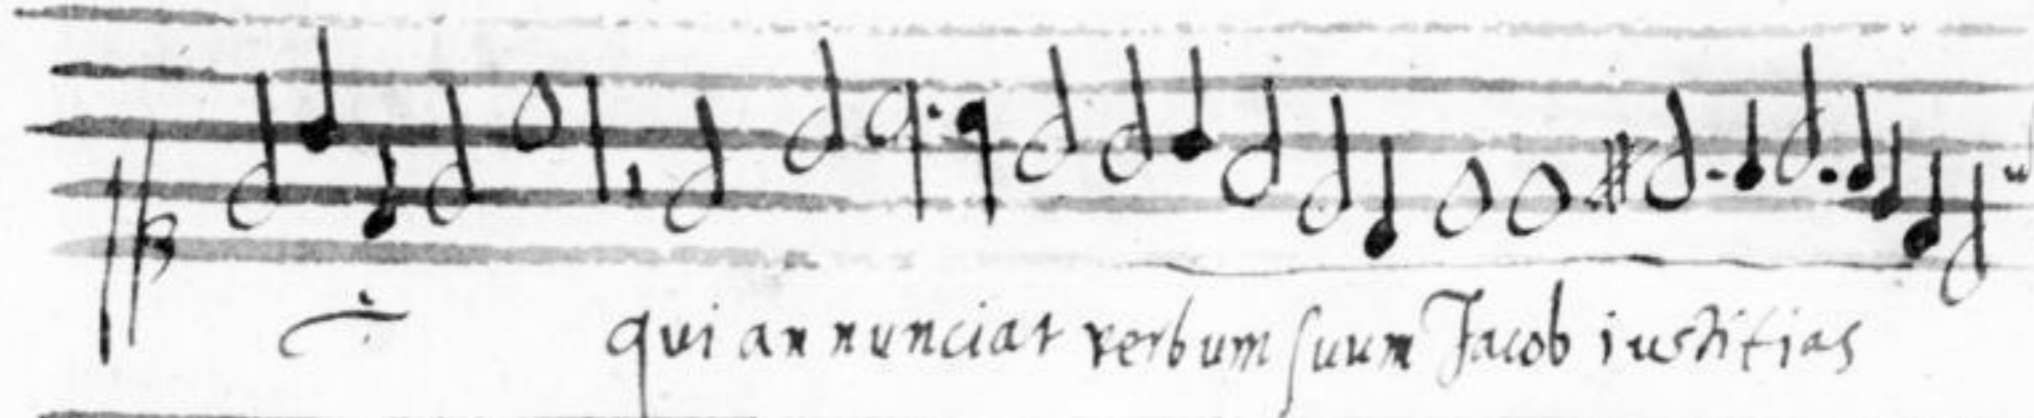 qui annunciat verbum suum Jacob iustitias